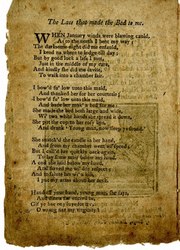 The Lass that made the Bed to me.
WHEN January winds were blawing cauld,
As to the north I bent my way,
The darksome night did me enfauld,
I kend na where to lodge till day;
But by good luck a lass I met,
Just in the middle of my care,
And kindly she did me invite,
To walk into a chamber fair.
I bow'd fu' low unto this maid,
And thanked her for her courtesie;
I bow'd fu' low unto this maid,
And bade her make a bed for me:
She made the bed both large and wide,
Wi' two white hands she spread it down,
She put the cup to her rosy lips,
And drank Young man, now sleep you sound.
She snatch'd the candle in her hand,
And from my chamber went wi' speed;
But I call'd her quickly back again,
To lay some mair below my head:
A cod she laid below my head,
And served me with due respect,
And to salute her wi' a kiss,
I put my arms about her neck.
Haud aff your hands, young man, she says,
And dinna sae uncivil be,
O wrang na my virginity!